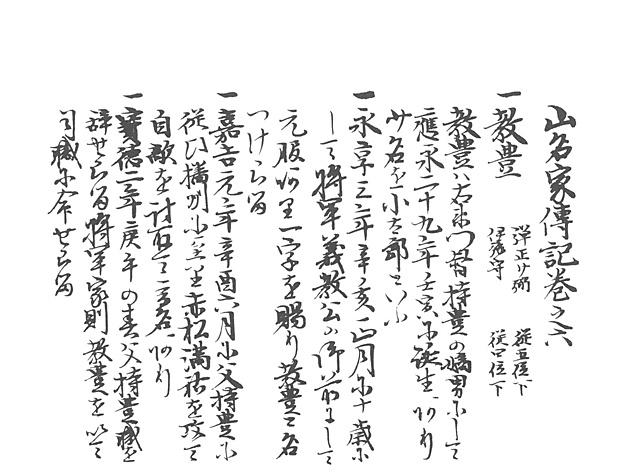 山名家傳記巻之六
一 教豊 弾正少弼 従五位下
伊豫守 従四位下
教豊ハ右衛門督持豊の嫡男にして
應永二十九年壬寅に誕生ありて
少名を小太郎といふ
一 永享三年辛亥正月に十歳に
して将軍義教公の御前にして
元服あり一字を賜り教豊と名
つけらる
一 嘉吉元年辛酉六月に父持豊に
従ひ播州に至り赤松満祐を攻て
自敵を討取て高名あり
一 寳徳二年庚午の春父持豊職を
辞せらる将軍家則教豊を以て
司職に命せらる